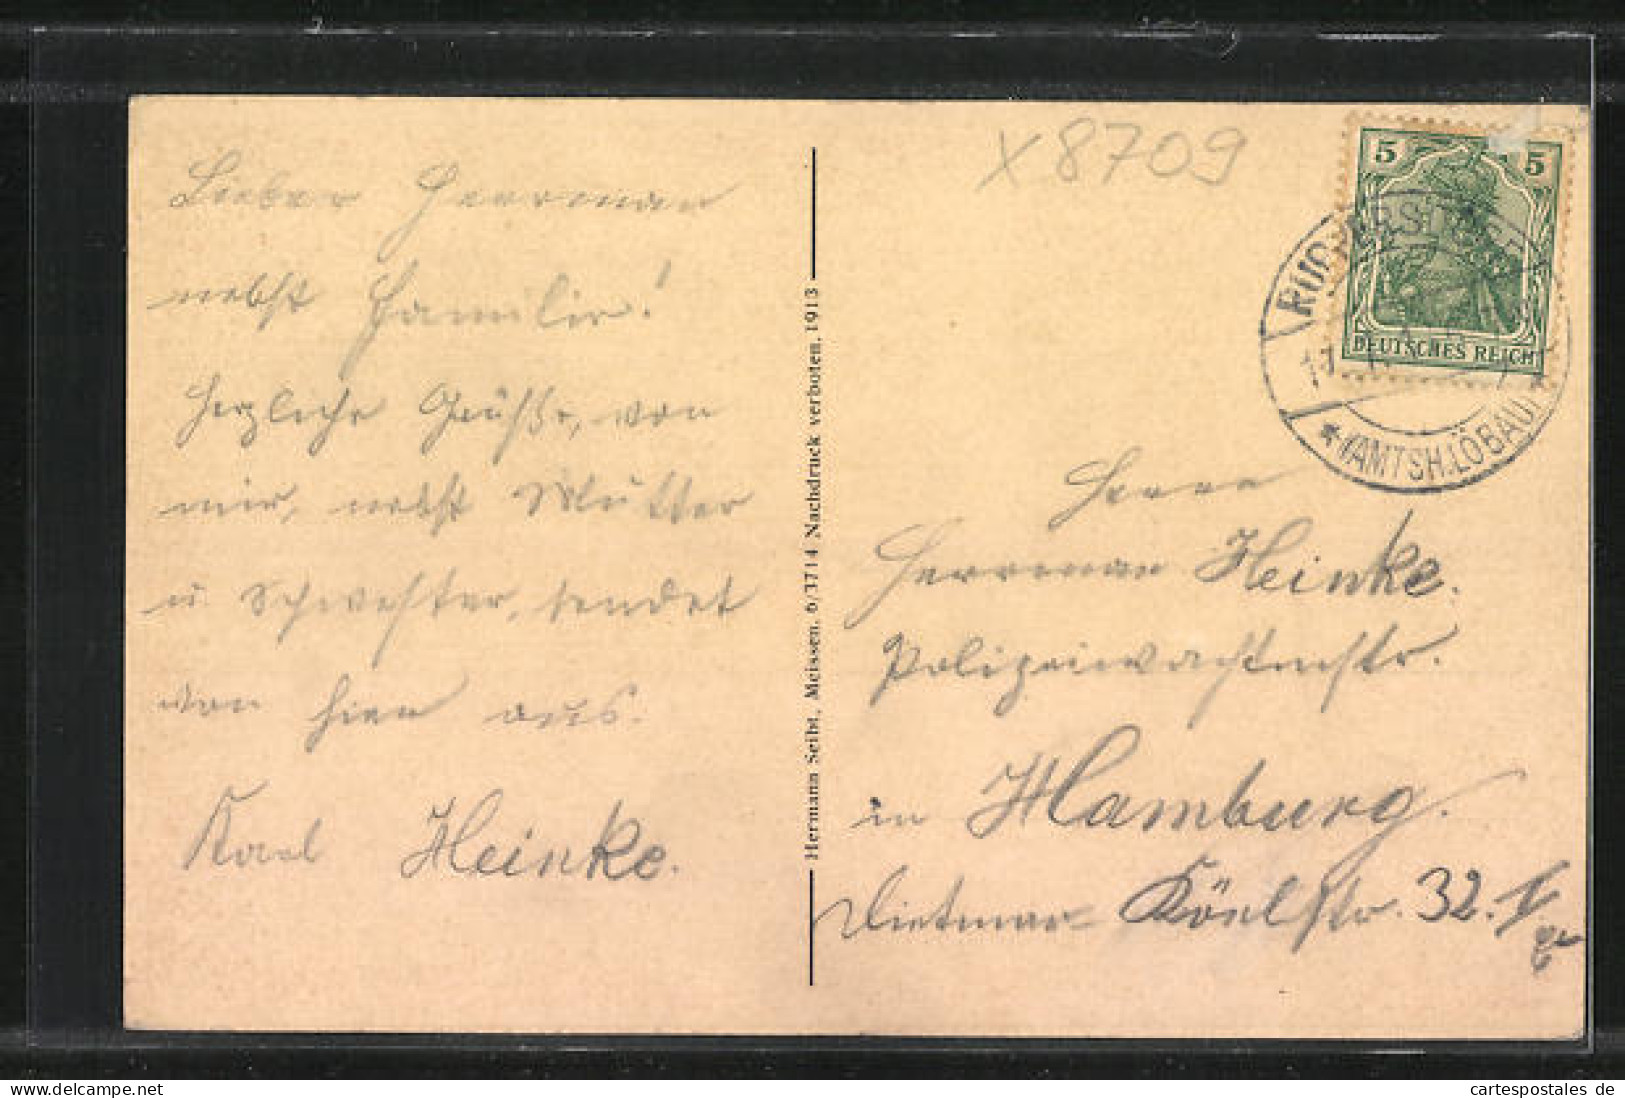 Lieber Herrman
nebst Familie!
Herzliche Grüße, von
mir, nebst Mutter
u. Schwester, sendet
von hier aus.
Karl Heinke.
Hermann Seibt, Meissen, 6/3714 Nachdruck verboten, 1913
X 8709
5 5
DEUTSCHES REICH
* (AMTSH.LÖBAU) *
Herrn
Herrman Heinke.
Polizeiwachtmstr.
in Hamburg.
Dietmar- Köelstr. 32. I
delcampe.net
cartespostales de